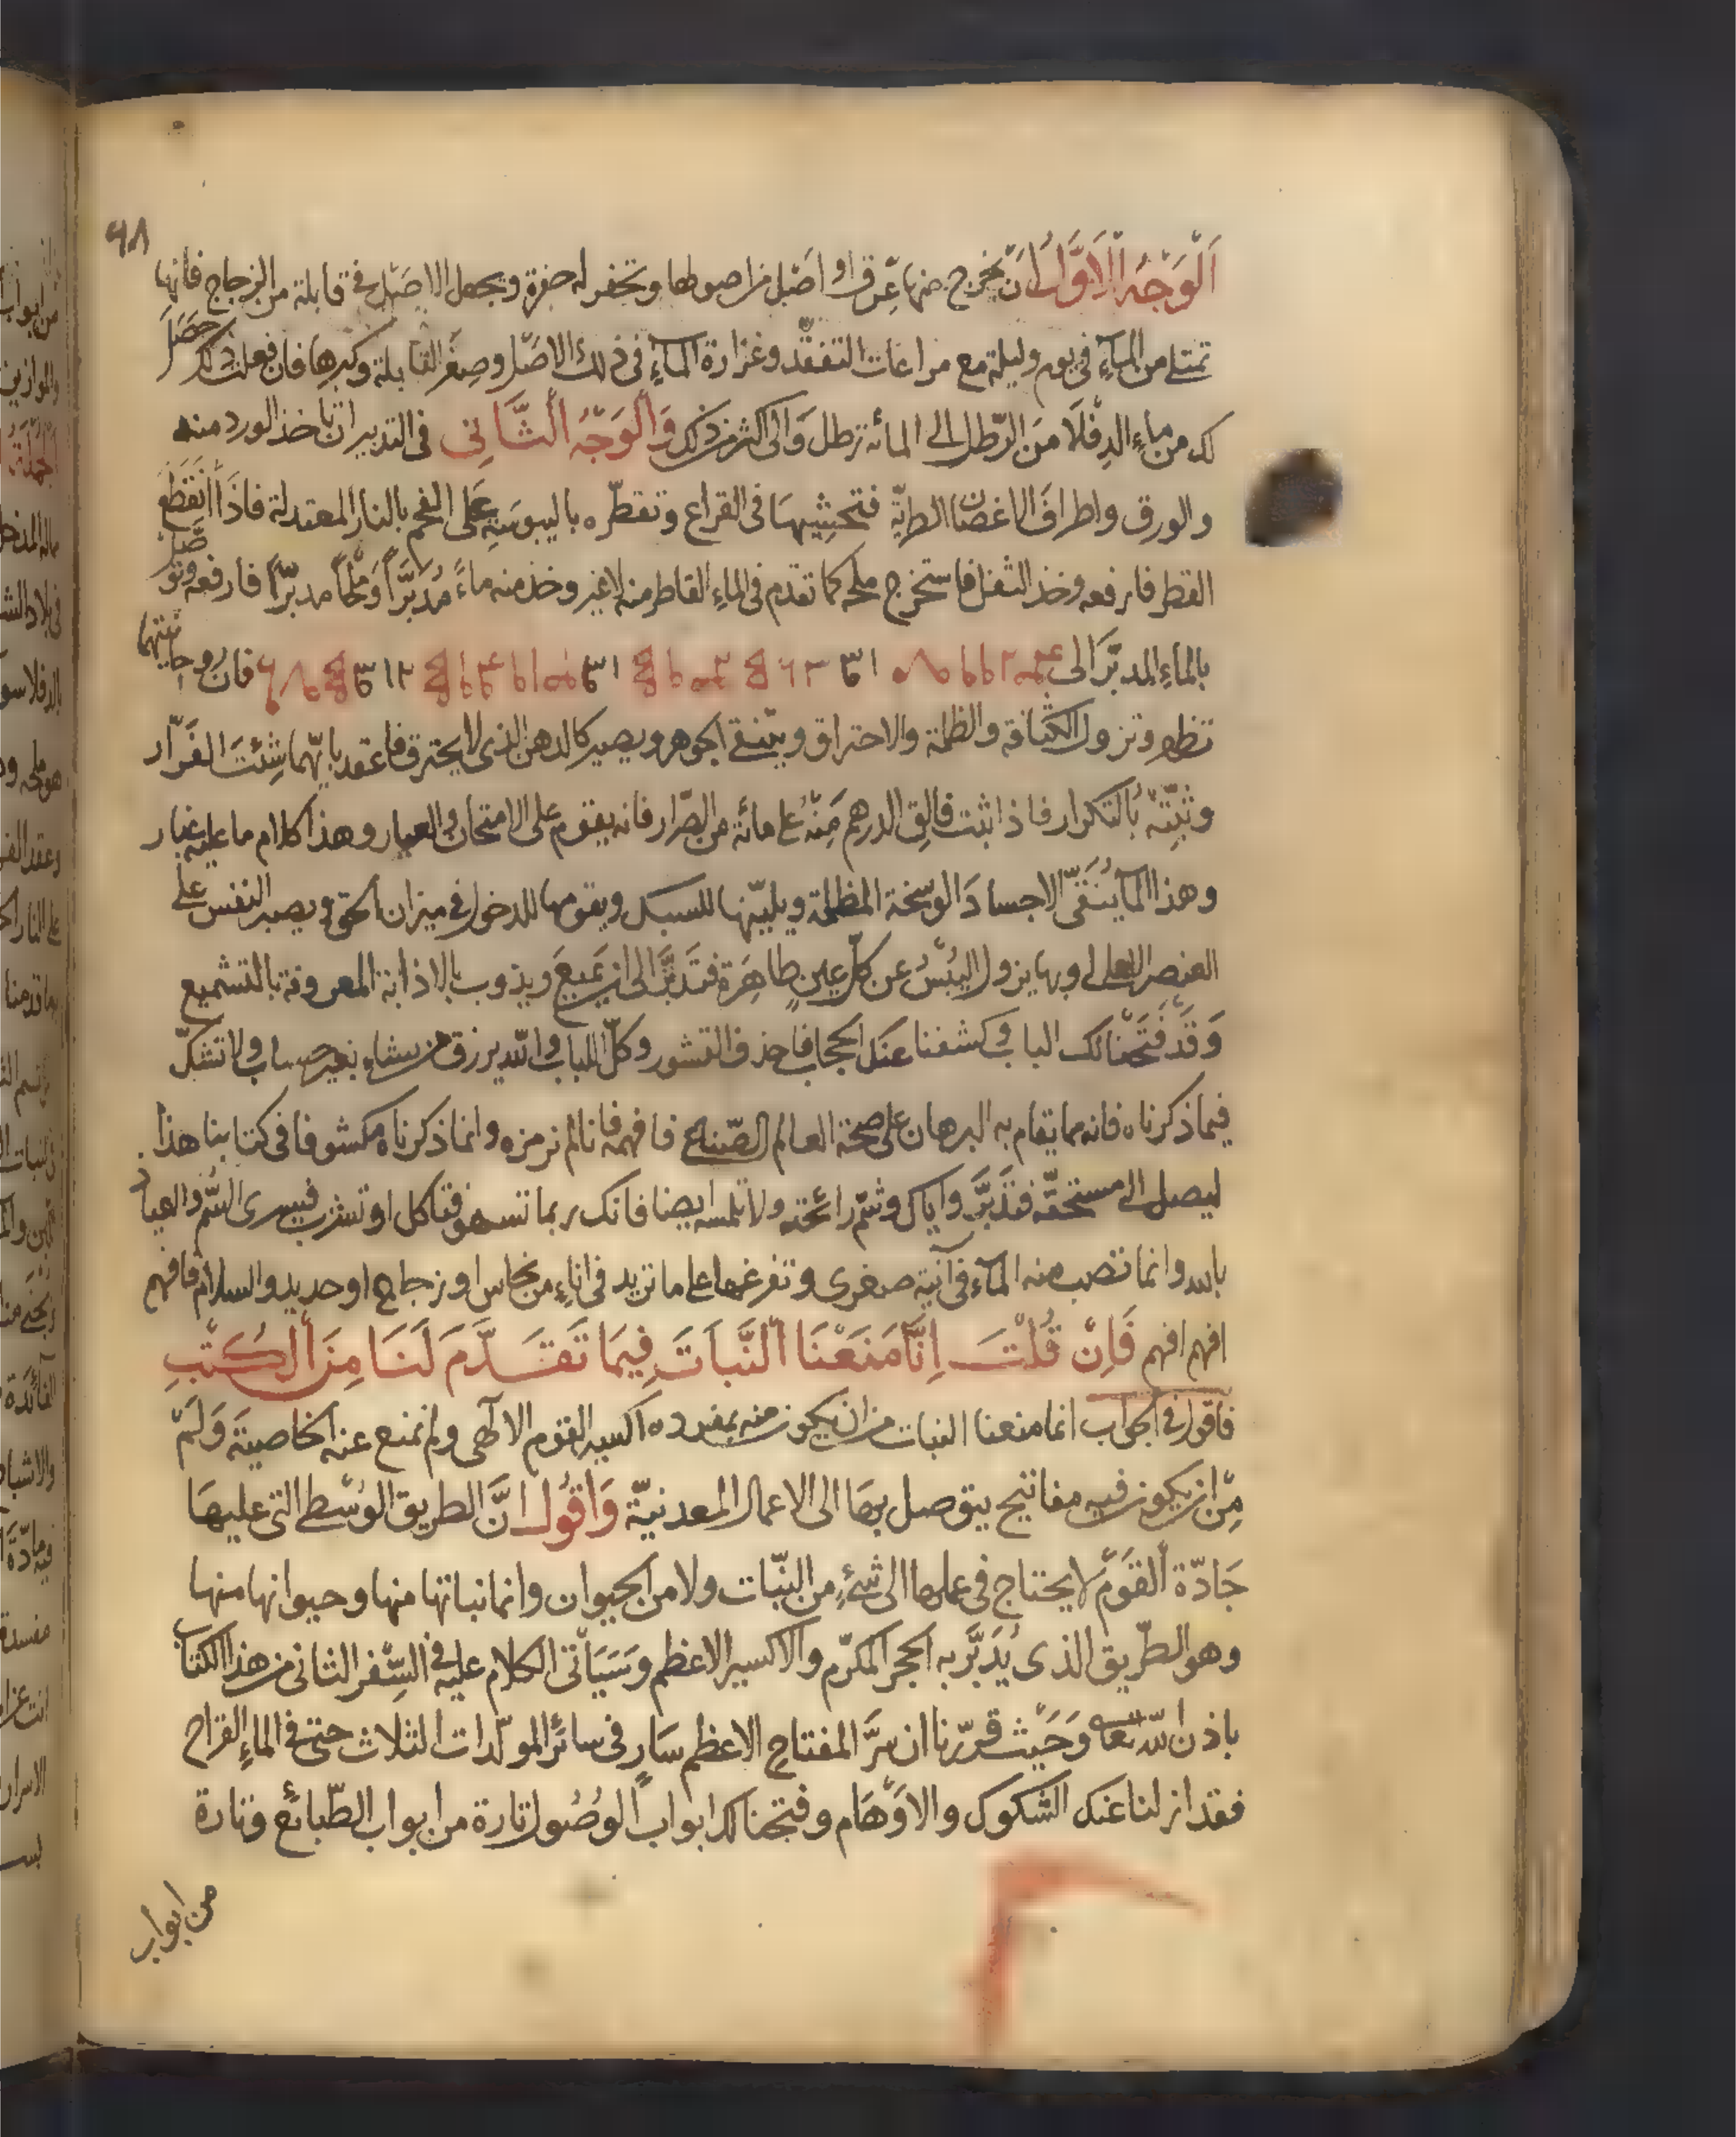 ٩٨
اَلْوَجْهُ الْاَوَّلُ اَنْ يخرج منها عرق او اصل من اصولها وتحفر له حفرة ويجعل الاصل في قابلة من الزجاج فانها
تمتلي من الماء في يوم وليلة مع مراعات التفقّد وغزارة الماء في ذلك الاصل وصغر القابلة وكبرها فان فعلت ذلك حصل
لك من ماء الدفلا من الرّطل الى المائة رطل والى اكثر من ذلك وَالْوَجْهُ الثَّانِى فى التدبير ان ياخذ الورد منه
والورق واطراف الاغصان الطريّة فتحشيها فى القراع وتقطّره باليبوسة على الفحم بالنار المعتدلة فاذا انقطع
القطر فارفعه وخذ الثفل فاستخرج ملحه كما تقدم فى الماء القاطر منه لاغير وخذ منه ماءً مُدبَّراً وملحاً مدبّراً فارفعه وتوصل
بالماء المدبّر الى فان روحانيتهما
تظهر وتزول الكثافة والظلمة والاحتراق ويتنقى الجوهر ويصير كالدهن الذى لا يحترق فاعقد بايّهما شئت الفرّار
وثبّته بالتكرار فاذا ثبت فالق الدرهم منه على مائة من الصّرار فانه يقوم على الامتحان والعيار وهذا كلام ما عليه غبار
وهذا الماء ينقّى الاجساد الوسخة المظلمة ويليّنها للسبك ويقومها للدخول في ميزان الحق ويصير النفس على
العنصر وبها يزول اليبس عن كلّ عين طاهرة فتدبّر الى ان يميع ويذوب بالاذابة المعروفة بالتشميع
وَقَدْ فَتَحْنَا لك الباب وكشفنا عنك الحجاب فاحذف القشور وكل اللباب والله يرزق من يشاء بغير حساب ولا تشكّ
فيما ذكرناه فانه مما يقام به البرهان على صحة العالم الصّناع فافهمه فانا لم نرمزه وانما ذكرناه مكشوفا فى كتابنا هذا
ليصل الى مستحقّه فتدبّر واياك وشمّ رائحته ولا تلمسه ايضا فانك ربما تسهو فتاكل او تشرب فيسرى السّم والعياذ
بالله وانما تصب منه الماء فى آنية صغرى وتفرغها على ما تريد فى اناء من نحاس او زجاج او حديد والسلام فافهم
افهم افهم فَاِنْ قُلْتَ اِنَّا مَنَعْنَا النَّبَاتَ فِيمَا تَقَدَّمَ لَنَا مِنَ الْكُتُبِ
فاقول في الجواب انما منعنا النبات من ان يكون منه بمفرده اكسير القوم الالهى ولم نمنع عنه الخاصية وَلَمْ
مِنْ ان يكون فيه مفاتيح يتوصل بها الى الاعمال المعدنيّة وَاَقُولُ انَّ الطريق الوُسْطى التى عليها
جَادّة القَوْم لا يحتاج فى عملها الى شئ من النّبات ولا من الحيوان وانما نباتها منها وحيوانها منها
وهو الطّريق الذى يُدَبَّر به الحجر المكرّم والاكسير الاعظم وسَيَأتى الكلام عليه فى السِّفر الثانى من هذا الكتاب
باذن الله تعالى وَحَيْث قرّرنا ان سرَّ المفتاح الاعظم سَارٍ فى سائر المولّدات الثلاث حتى فى الماء القراح
فقد ازلنا عنك الشكوك والاوهام وفتحنا لك ابواب الوُصُول تارة من ابواب الطّبائع وتارة
من ابواب